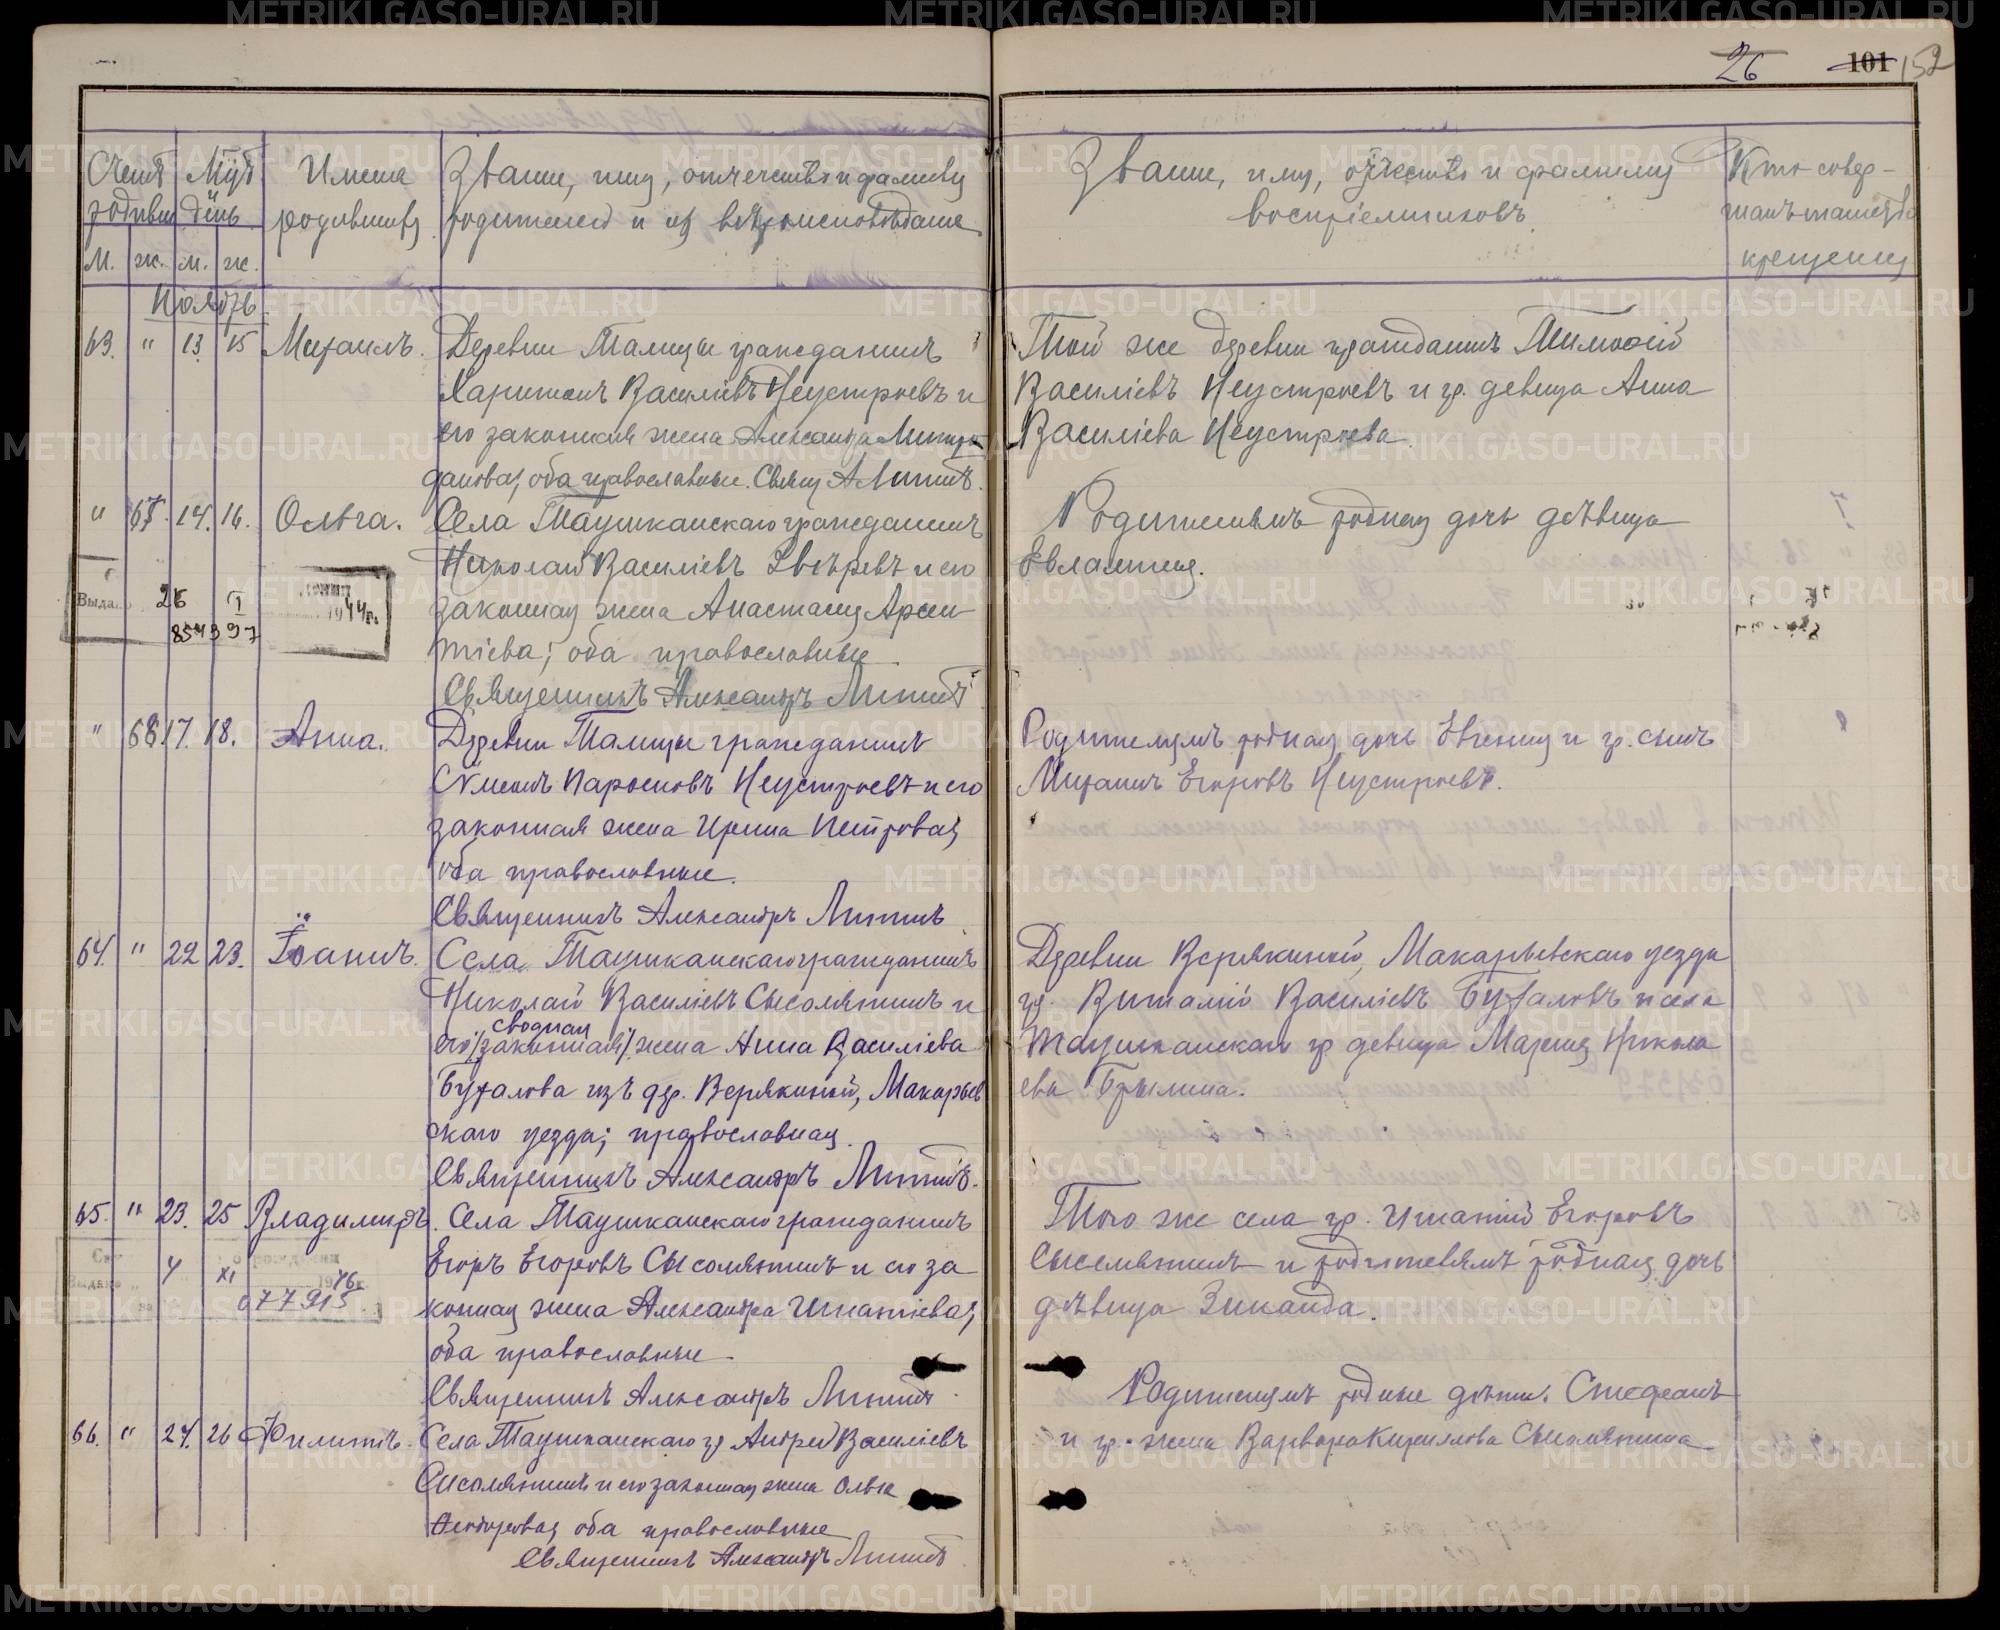 26 101 152
Счетъ родивш. Мѣс. день Имена родившихся Званіе, имя, отчество и фамилія
родителей и ихъ вѣроисповѣданіе
Званіе, имя, отчество и фамилія
воспріемниковъ.
Кто совер-
шалъ таинство
крещенія
М. ж. м. ж.
Ноябрь
63. " 13. 15 Михаилъ. Деревни Талицы гражданинъ
Харитонъ Василіевъ Неустроевъ и
его законная жена Александра
оба православные. Свящ. А
Той же деревни гражданинъ Тимоѳей
Василіевъ Неустроевъ и гр. девица Анна
Василіева Неустроева.
" 67. 14. 16. Ольга. Села Таушканскаго гражданинъ
Николай Василіевъ Звѣревъ и его
законная жена Анастасія Арсен-
тіева; оба православные
Священникъ Александръ
Родителямъ родная дочь дѣвица
Евлампія.
Выдано 26 I 1944г.
854397
" 68. 17. 18. Анна. Деревни Талицы гражданинъ
Сѵмеонъ Неустроевъ и его
законная жена Ирина Петровая
оба православные.
Священникъ Александръ
Родителямъ родная дочь Евгенія и гр. сынъ
Михаилъ Егоровъ Неустроевъ.
64. " 22 23. Іоаннъ. Села Таушканскаго гражданинъ
Николай Василіевъ Сысолятинъ и
сводная
его /законная/ жена Анна Василіева
Буфалова изъ дер. Верякиной, Макарьев
скаго уезда; православная.
Священникъ Александръ
Деревни Верякиной, Макарьевскаго уезда
гр. Виталій Василіевъ Буфаловъ и села
Таушканскаго гр девица Марія Никола
ева Брылина.
65. " 23. 25 Владимиръ. Села Таушканскаго гражданинъ
Егоръ Егоровъ Сысолятинъ и его за
конная жена Александра Игнатіевая;
оба православные.
Священникъ Александръ
Того же села гр. Игнатій Егоровъ
Сысолятинъ и родителямъ родная дочь
дѣвица Зинаида.
Выдано 4 XI 1976г.
077915
66. " 24. 26 Филиппъ. Села Таушканскаго гр Андрей Василіевъ
Сысолятинъ и его законная жена Ольга
Ѳеодоровая оба православные
Священникъ Александръ
Родителямъ родные дѣти: Стефанъ
и гр. жена Варвара Кириллова Сысолятина
METRIKI.GASO-URAL.RU